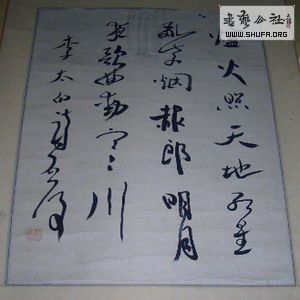 书艺公社
WWW.SHUFA.ORG
炉火照天地红星
乱紫烟赧郎明月
夜歌曲動寒川
李太白诗